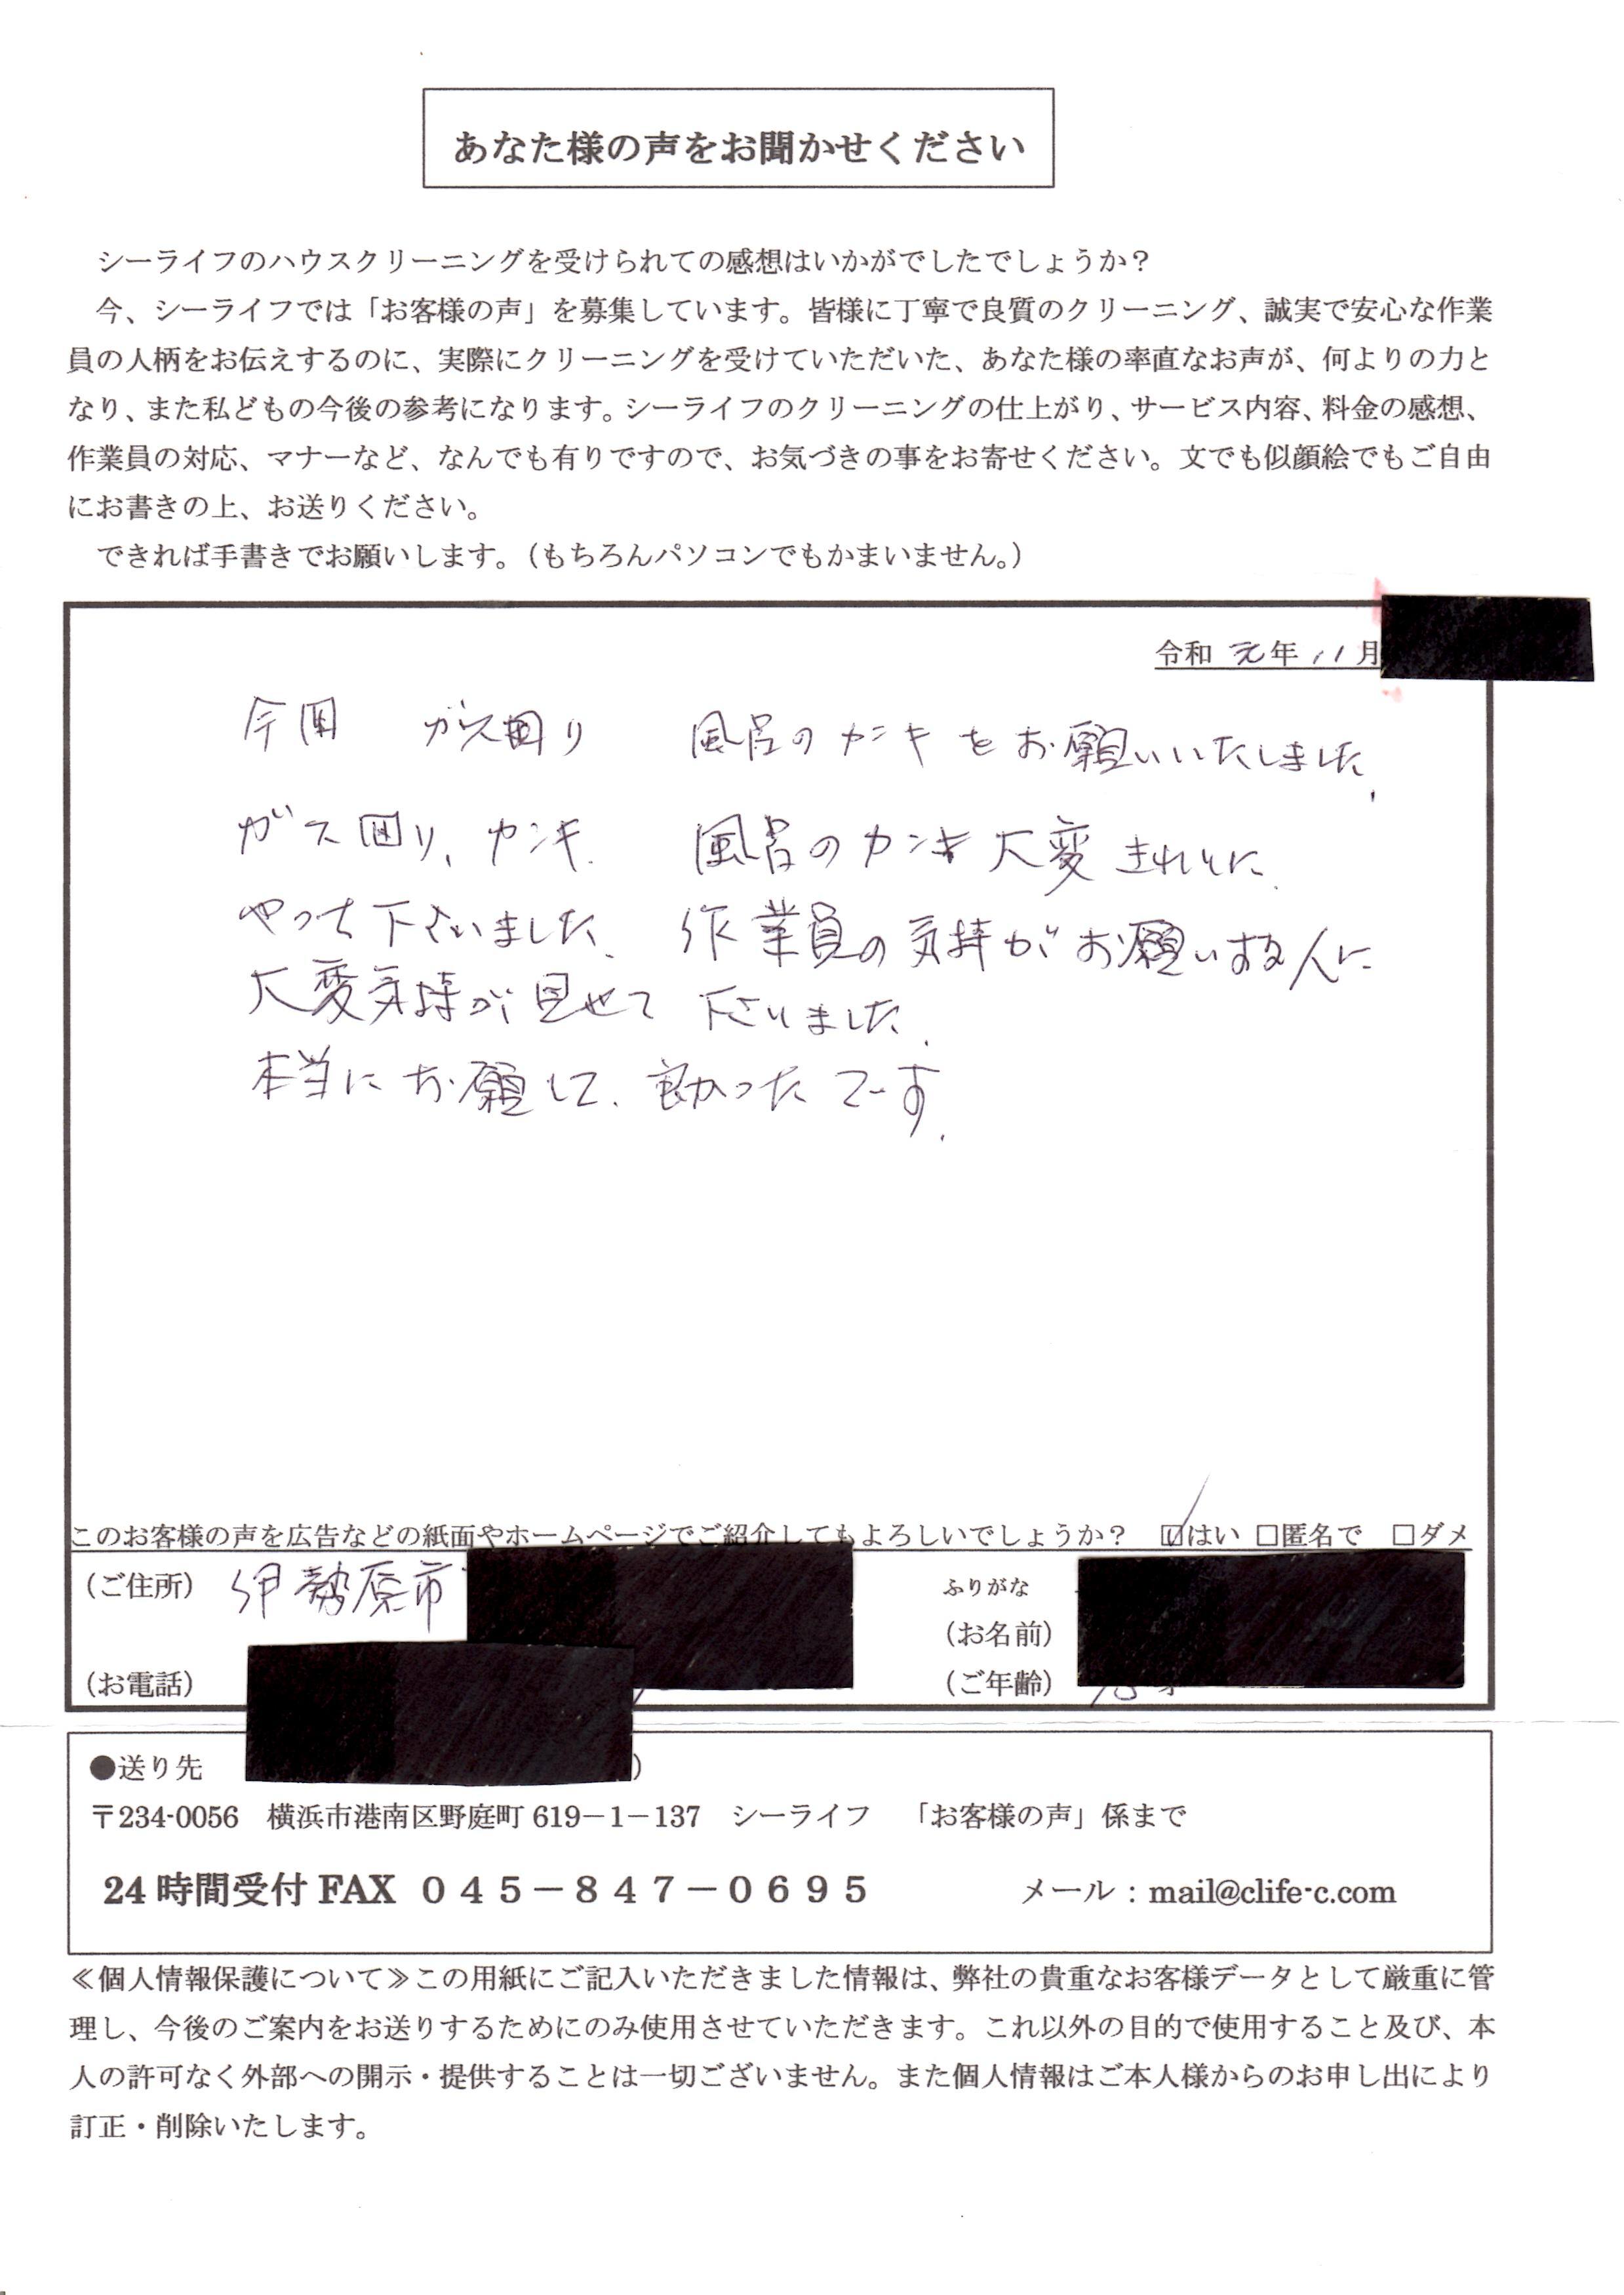 あなた様の声をお聞かせください
シーライフのハウスクリーニングを受けられての感想はいかがでしたでしょうか？
今、シーライフでは「お客様の声」を募集しています。皆様に丁寧で良質のクリーニング、誠実で安心な作業
員の人柄をお伝えするのに、実際にクリーニングを受けていただいた、あなた様の率直なお声が、何よりの力と
なり、また私どもの今後の参考になります。シーライフのクリーニングの仕上がり、サービス内容、料金の感想、
作業員の対応、マナーなど、なんでも有りですので、お気づきの事をお寄せください。文でも似顔絵でもご自由
にお書きの上、お送りください。
できれば手書きでお願いします。（もちろんパソコンでもかまいません。）
令和 元年 11月
今回 ガス回り 風呂のカンキをお願いいたしました.
ガス回り、カンキ. 風呂のカンキ大変きれいに
やって下さいました. 作業員の気持がお願いする人に
大変気持が見せて 下さいました.
本当にお願して. 良かったでーす.
このお客様の声を広告などの紙面やホームページでご紹介してもよろしいでしょうか？ ☑はい □匿名で □ダメ
（ご住所） 伊勢原市
ふりがな
（お名前）
（お電話） （ご年齢）
●送り先
〒234-0056 横浜市港南区野庭町 619－1－137 シーライフ 「お客様の声」係まで
24 時間受付 FAX ０４５－８４７－０６９５ メール：mail@clife-c.com
≪個人情報保護について≫この用紙にご記入いただきました情報は、弊社の貴重なお客様データとして厳重に管
理し、今後のご案内をお送りするためにのみ使用させていただきます。これ以外の目的で使用すること及び、本
人の許可なく外部への開示・提供することは一切ございません。また個人情報はご本人様からのお申し出により
訂正・削除いたします。